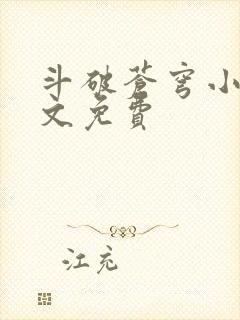 斗破苍穹小
文免费
江充